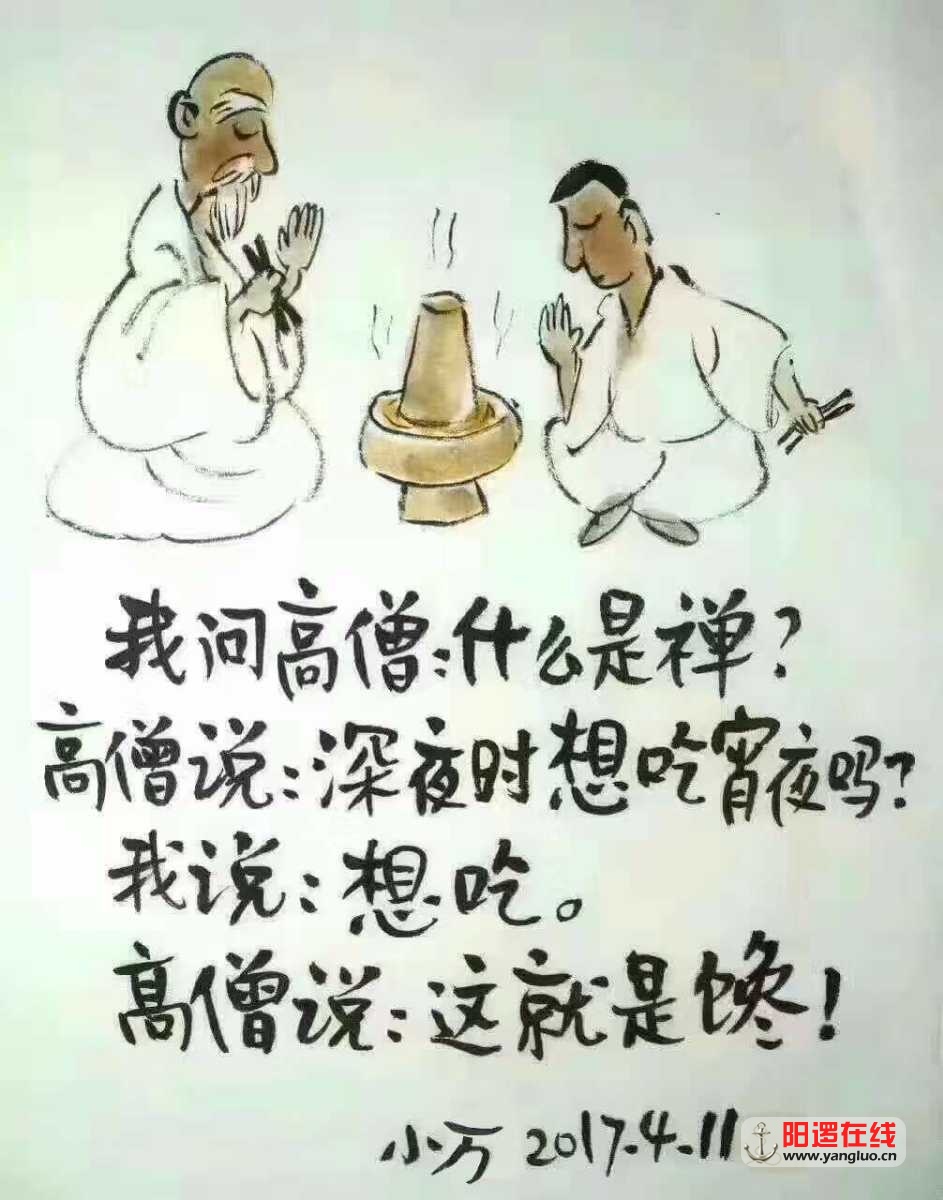 我问高僧:什么是禅?
高僧说:深夜时想吃宵夜吗?
我说:想吃。
高僧说:这就是馋!
小万 2017.4.11
阳逻在线
www.yangluo.cn